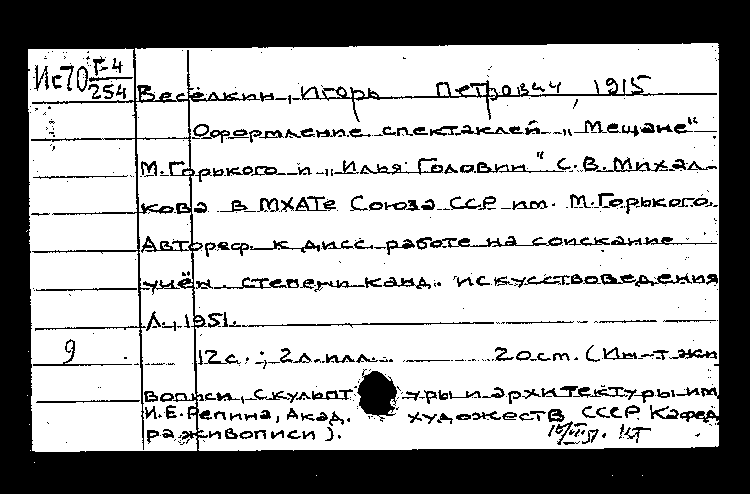 Ис70 Г-4
254
Веселкин, Игорь Петрович, 1915
Оформление спектаклей „Мещане"
М. Горького и „Илья Головин" С. В. Михал-
кова в МХАТе Союза ССР им. М. Горького.
Автореф. к дисс. работе на соискание
учён. степени канд. искусствоведения
Л., 1951.
9 12 с.; 2 л. илл. 20 cm. (Ин-т жи
вописи, скульптуры и архитектуры им
И. Е. Репина, Акад. художеств СССР. Кафед
ра живописи).